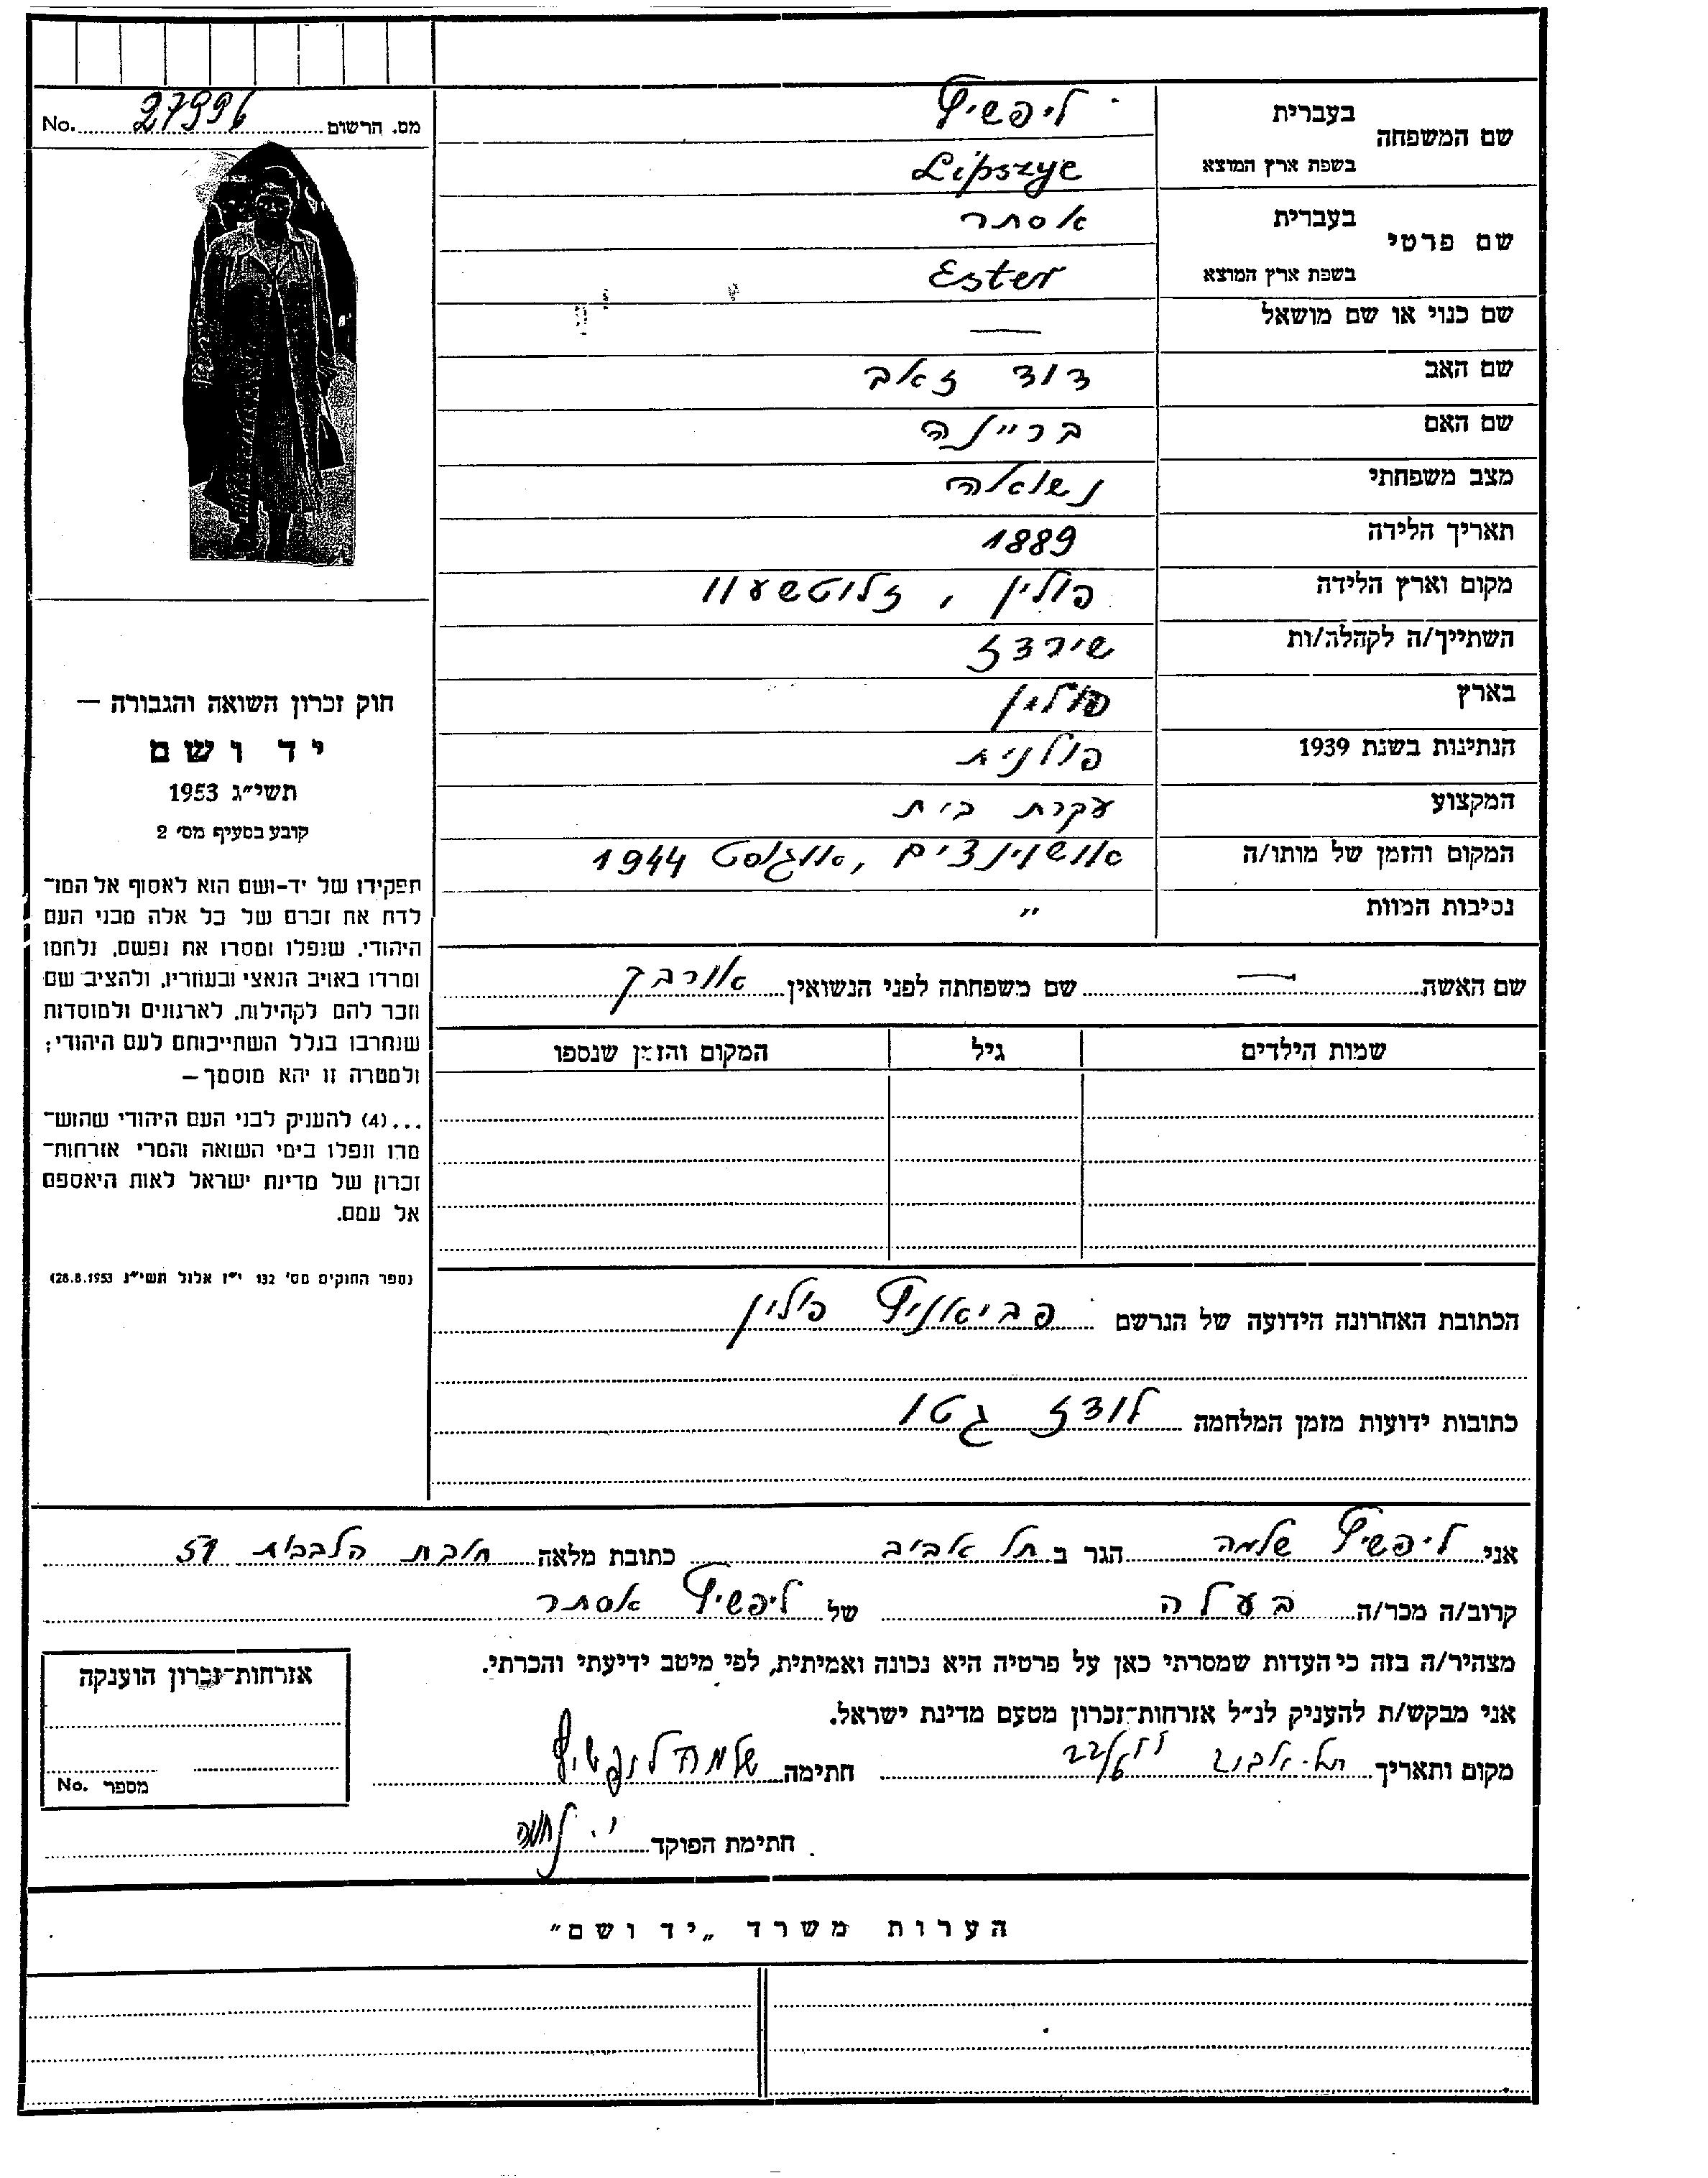 No. 27996 מס. הרשום
שם המשפחה
בעברית ליפשיץ
בשפת ארץ המוצא Lipszyc
שם פרטי
בעברית אסתר
בשפת ארץ המוצא Ester
שם כנוי או שם מושאל —
שם האב דוד זאב
שם האם בריינה
מצב משפחתי נשואה
תאריך הלידה 1889
מקום וארץ הלידה פולין, זלוטשעוו
השתייך/ה לקהלה/ות שירדז
בארץ פולין
הנתינות בשנת 1939 פולנית
המקצוע עקרת בית
המקום והזמן של מותו/ה אושוינצים, אוגוסט 1944
נסיבות המוות "
שם האשה — שם משפחתה לפני הנשואין אוורבך
שמות הילדים גיל המקום והזמן שנספו
הכתובת האחרונה הידועה של הנרשם פביאניץ פולין
כתובות ידועות מזמן המלחמה לודז גטו
חוק זכרון השואה והגבורה —
יד ושם
תשי״ג 1953
קובע בסעיף מס׳ 2
תפקידו של יד-ושם הוא לאסוף אל המו־
לדת את זכרם של כל אלה מבני העם
היהודי, שנפלו ומסרו את נפשם, נלחמו
ומרדו באויב הנאצי ובעוזריו, ולהציב שם
וזכר להם לקהילות, לארגונים ולמוסדות
שנחרבו בגלל השתייכותם לעם היהודי;
ולמטרה זו יהא מוסמך —
...(4) להעניק לבני העם היהודי שהוש־
מדו ונפלו בימי השואה והמרי אזרחות־
זכרון של מדינת ישראל לאות היאספם
אל עמם.
(ספר החוקים מס׳ 132 י״ז אלול תשי״ג 28.8.1953)
אני ליפשיץ שלמה הגר ב תל אביב כתובת מלאה חובת הלבבות 51
קרוב/ה מכר/ה בעלה של ליפשיץ אסתר
מצהיר/ה בזה כי העדות שמסרתי כאן על פרטיה היא נכונה ואמיתית, לפי מיטב ידיעתי והכרתי.
אני מבקש/ת להעניק לנ״ל אזרחות־זכרון מטעם מדינת ישראל.
מקום ותאריך תל-אביב חתימה שלמה ליפשיץ
חתימת הפוקד
אזרחות־זכרון הוענקה
No. מספר
הערות משרד „יד ושם״